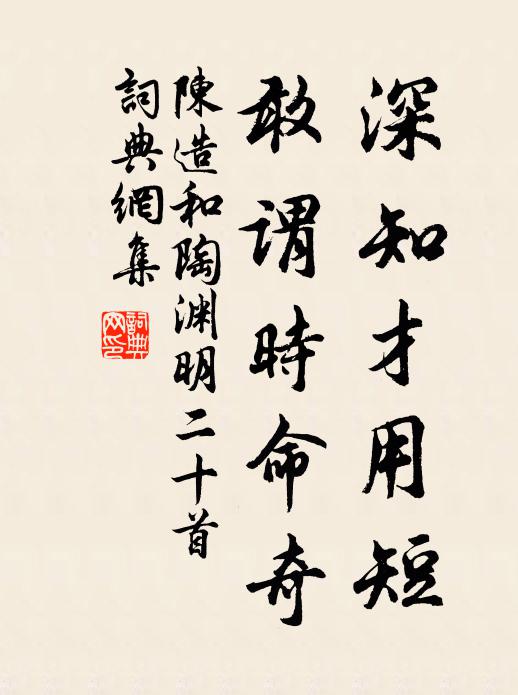 深知才用短
敢謂時命奇
陳造和陶渊明二十首
詞典網集
詞典
网印